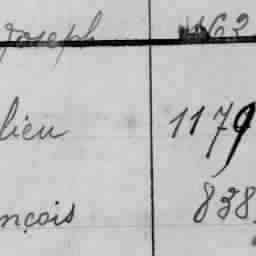 Joseph 462
lieu 1179
nçois 838